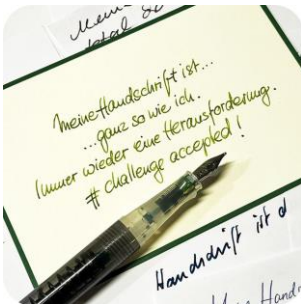 Meine
total so
Meine Handschrift ist...
...ganz so wie ich.
Immer wieder eine Herausforderung.
# challenge accepted!
Handschrift ist d
Hand